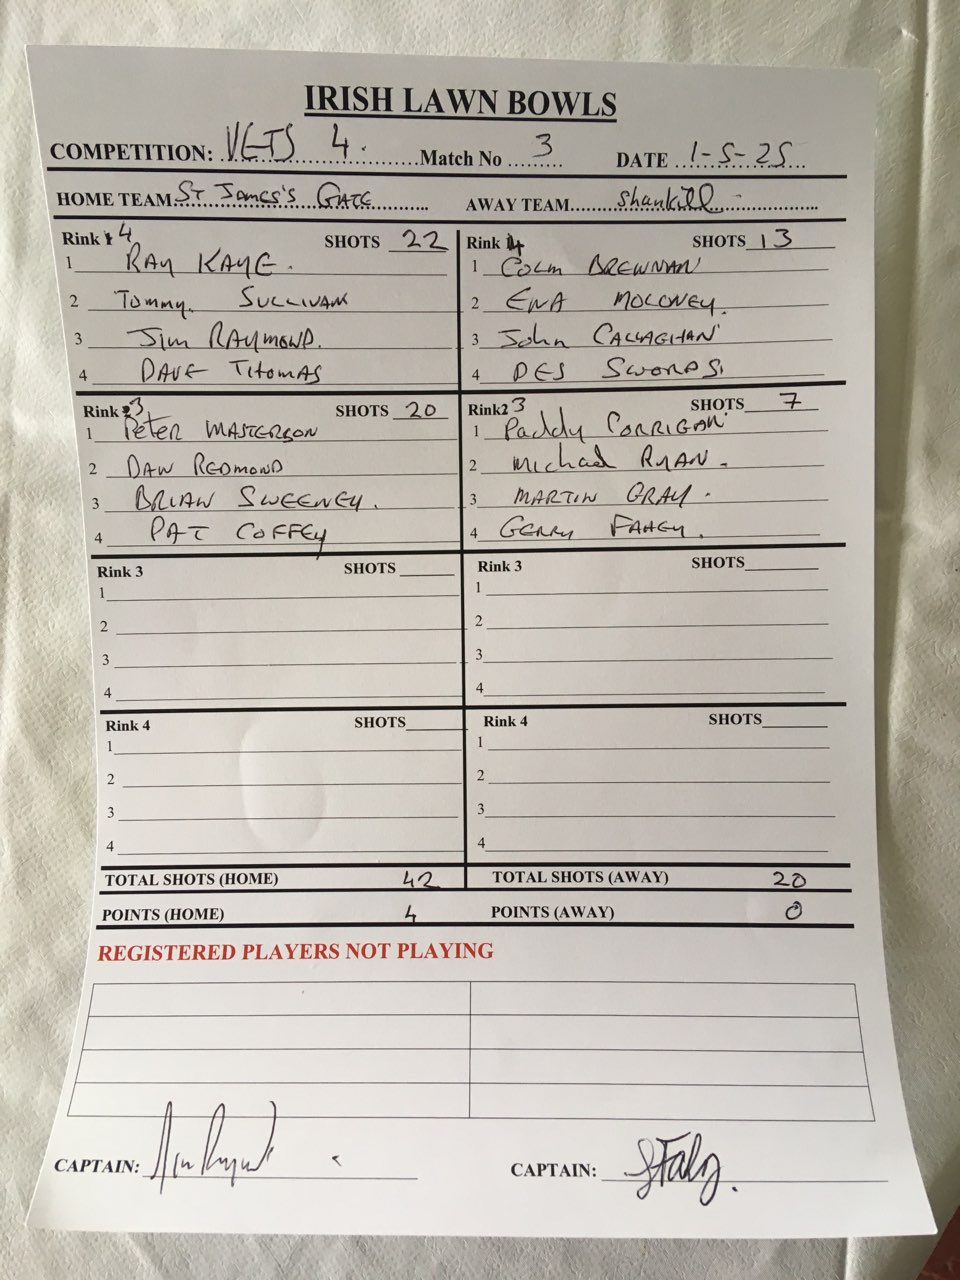 IRISH LAWN BOWLS
COMPETITION: VETS 4. Match No 3 DATE 1-5-25
HOME TEAM ST JAMES'S GATE AWAY TEAM Shankill
Rink 4 SHOTS 22 Rink 4 SHOTS 13
1 RAY KAYE. 1 COLM BRENNAN
2 Tommy. SULLIVAN 2 ENA MOLONEY.
3 Jim RAYMOND. 3 John CALLAGHAN
4 DAVE THOMAS 4 DES SWORDS.
Rink 3 SHOTS 20 Rink2 3 SHOTS 7
1 Peter MASTERSON 1 Paddy CORRIGAN
2 DAN REDMOND 2 Michael RYAN.
3 BRIAN SWEENEY. 3 MARTIN GRAY.
4 PAT COFFEY 4 GERRY FAHEY.
Rink 3 SHOTS Rink 3 SHOTS
1 1
2 2
3 3
4 4
Rink 4 SHOTS Rink 4 SHOTS
1 1
2 2
3 3
4 4
TOTAL SHOTS (HOME) 42 TOTAL SHOTS (AWAY) 20
POINTS (HOME) 4 POINTS (AWAY) 0
REGISTERED PLAYERS NOT PLAYING
CAPTAIN: CAPTAIN: